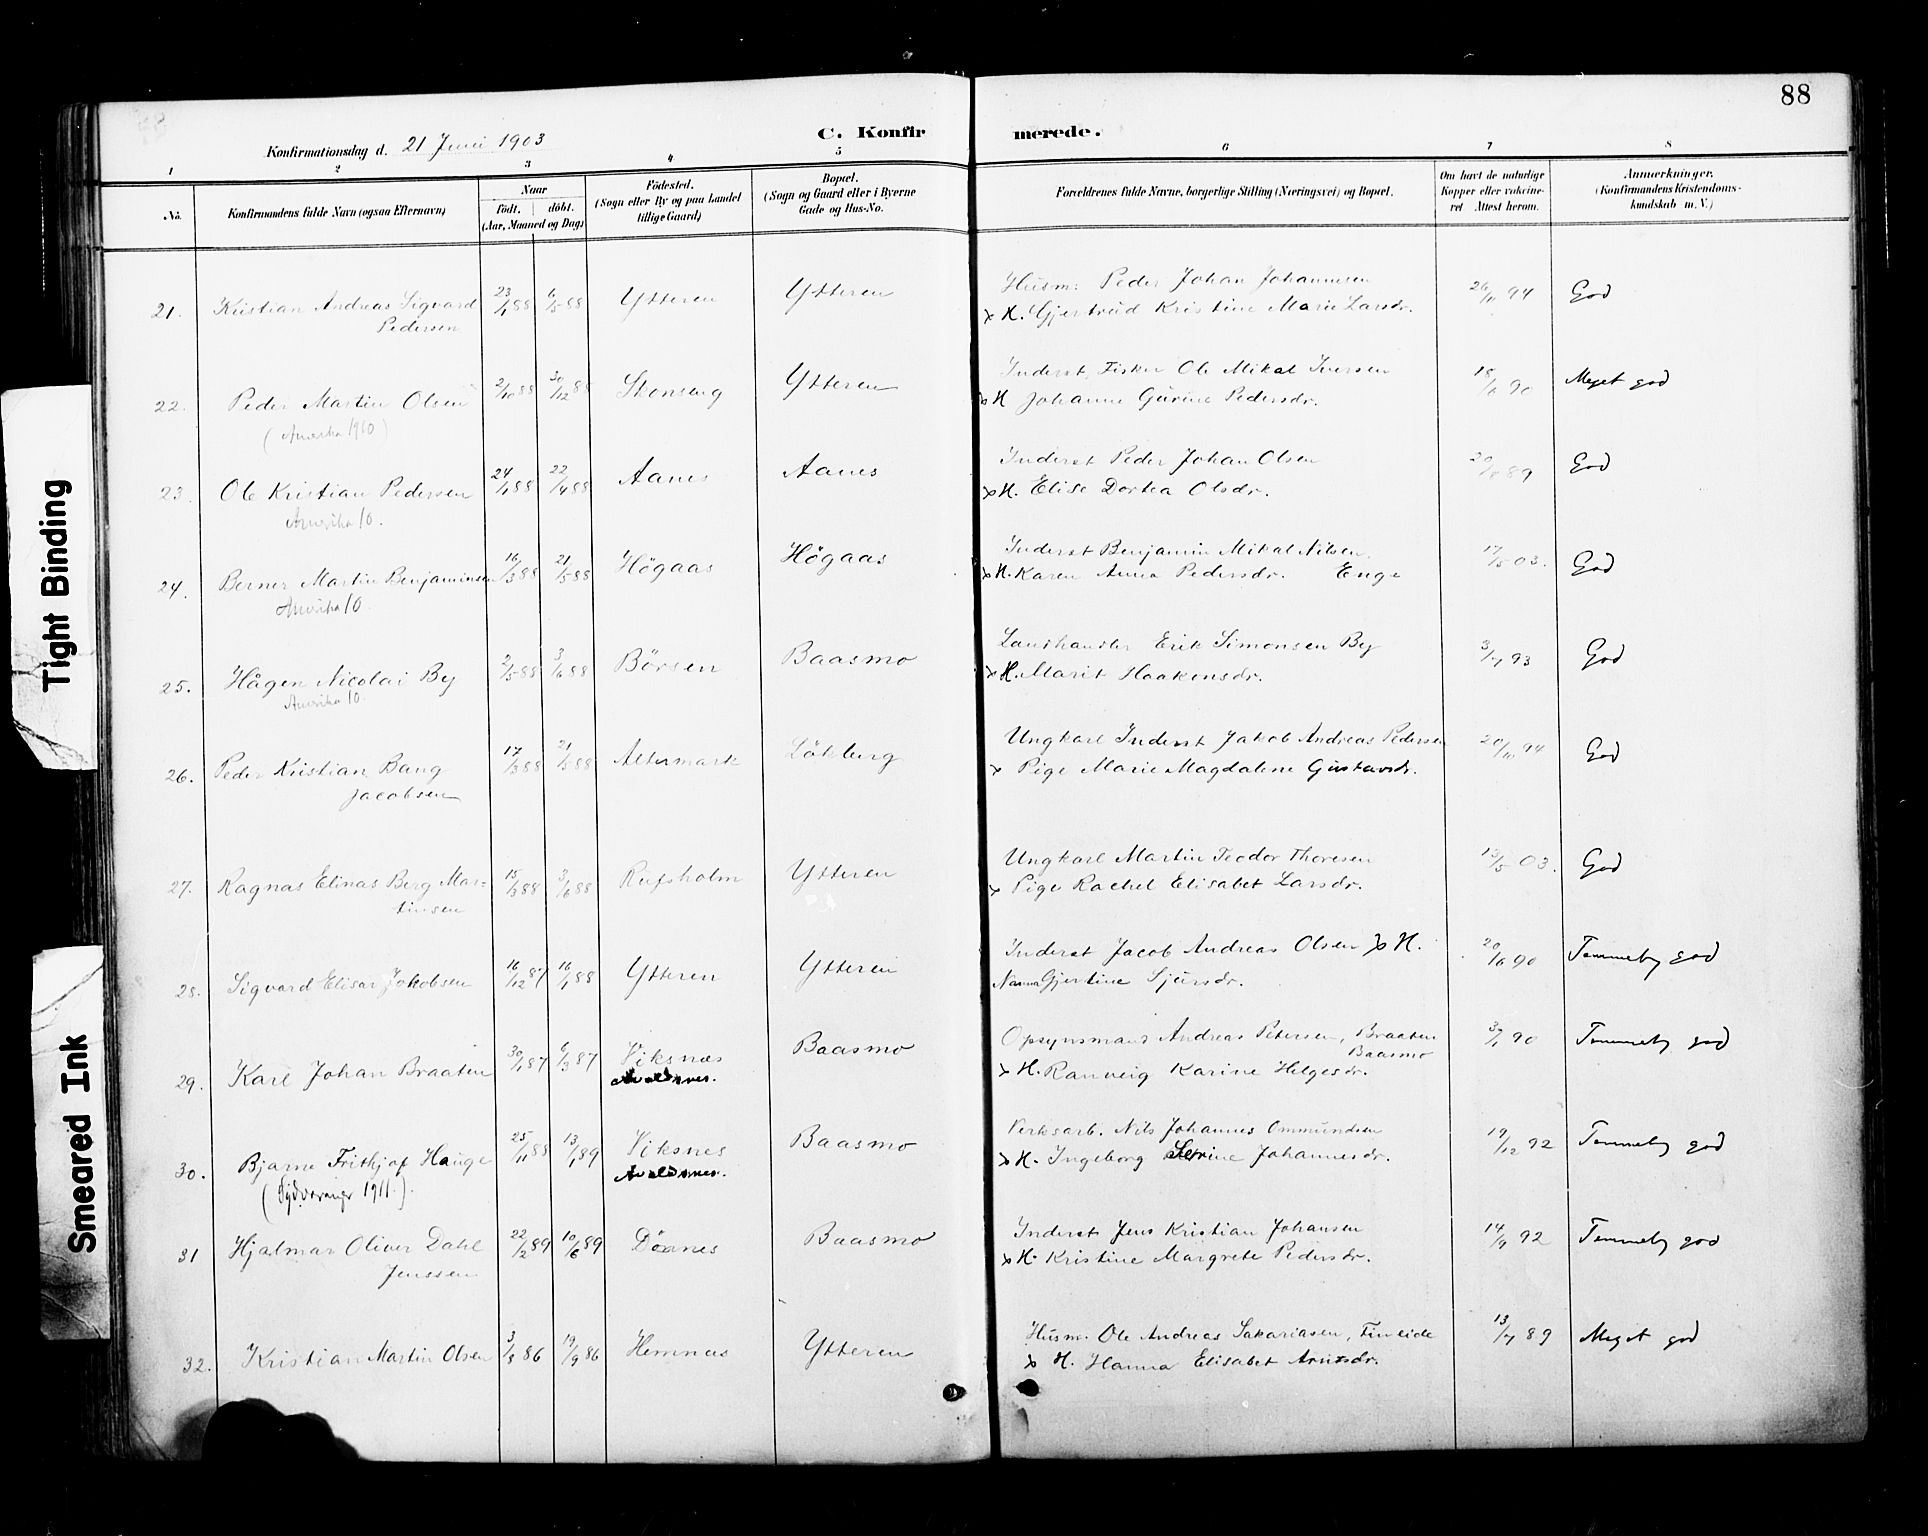 88
Konfirmationsdag d. 21 Juni 1903
C. Konfirmerede.
1 2 3 4 5 6 7 8
No.
Konfirmandens fulde Navn (ogsaa Efternavn)
Naar
födt. döbt.
(Aar, Maaned og Dag)
Födested.
(Sogn eller By og paa Landet
tillige Gaard)
Bopæl.
(Sogn og Gaard eller i Byerne
Gade og Hus-No.
Forældrenes fulde Navne, borgerlige Stilling (Næringsvei) og Bopæl.
Om havt de naturlige
Kopper eller vakcineret
Attest herom.
Anmærkninger.
(Konfirmandens Kristendomskundskab
m. V.)
21. Kristian Andreas Sigvard 23/1 88 6/5 88 Ytteren Ytteren Husm. Peder Johan Johannesen 26/11 94 God
Pedersen & H. Gjertrud Kristine Marie Larsdr.
22. Peder Martin Olsen 2/10 88 30/12 88 Stenseng Ytteren Inderst, Fisker Ole Mikal Iversen 18/6 90 Meget god
(Amerika 1910) & H Johanne Gurine Pedersdr.
23. Ole Kristian Pedersen 24/1 88 22/4 88 Aanes Aanes Inderst Peder Johan Olsen 20/8 89 God
Amerika 10. & H. Elise Dortea Olsdr.
24. Berner Martin Benjaminsen 16/3 88 21/5 88 Högaas Högaas Inderst Benjamin Mikal Nilsen, 17/5 03. God
Amerika 10. & H. Karen Anna Pedersdr. Enge
25. Hågen Nicolai By 2/5 88 3/6 88 Börsen Baasmo Landhandler Erik Simonsen By 3/7 93 God
Amerika 10. & H. Marit Haakensdr.
26. Peder Kristian Bang 17/3 88 21/5 88 Altermark Lökberg Ungkarl Inderst Jakob Andreas Pedersen 20/11 94 God
Jacobsen & Pige Marie Magdalene Gustavsdr.
27. Ragnas Elinas Berg Mar- 15/3 88 3/6 88 Rufsholm Ytteren Ungkarl Martin Teodor Thoresen 13/5 03. God
tinsen & Pige Rachel Elisabet Larsdr.
28. Sigvard Elisar Jakobsen 16/12 87 16/1 88 Ytteren Ytteren Inderst Jacob Andreas Olsen & H. 20/6 90 Temmelig god
Nanna Gjertine Sjursdr.
29. Karl Johan Braaten 30/1 87 6/3 87 Viksnæs Baasmo Opsynsmand Andreas Petersen, Braaten 3/1 90 Temmelig god
Avaldsnes. Baasmo
& H. Ranveig Karine Helgesdr.
30. Bjarne Frithjof Hauge 25/11 88 13/1 89 Viksnes Baasmo Verksarb. Nils Johannes Ommundsen 19/12 92 Temmelig god
(Sydvaranger 1911.) Avaldsnes. & H. Ingeborg Serine Johannesdr.
31 Hjalmar Oliver Dahl 22/2 89 10/6 89 Dönnes Baasmo Inderst Jens Kristian Johansen 14/9 92 Temmelig god
Jenssen & H. Kristine Margrete Pedersdr.
32. Kristian Martin Olsen 3/8 86 19/9 86 Hemnæs Ytteren Husm. Ole Andreas Sakariasen, Fineide 13/7 89 Meget god
& H. Hanna Elisabet Arntsdr.
Tight Binding
Smeared Ink